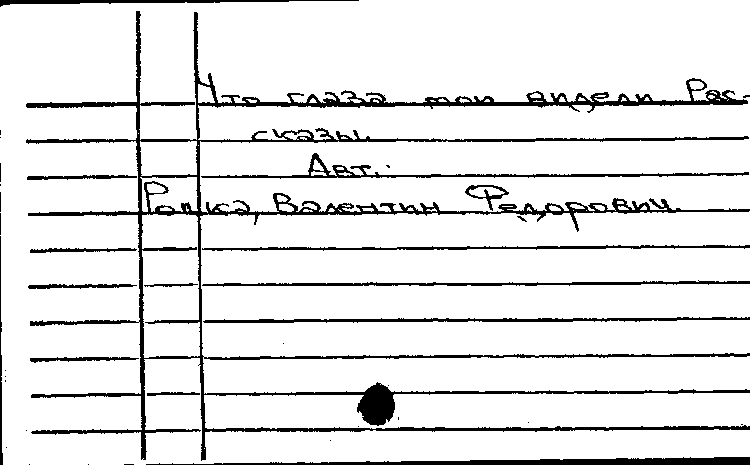 Что глаза мои видели. Рас-
сказы.
Авт.:
Валентин Федорович